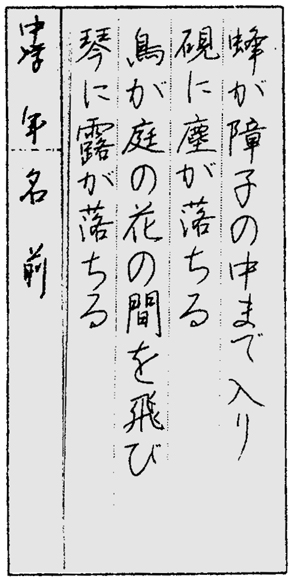 蜂が障子の中まで入り
硯に塵が落ちる
鳥が庭の花の間を飛び
琴に露が落ちる
中学 年 名前